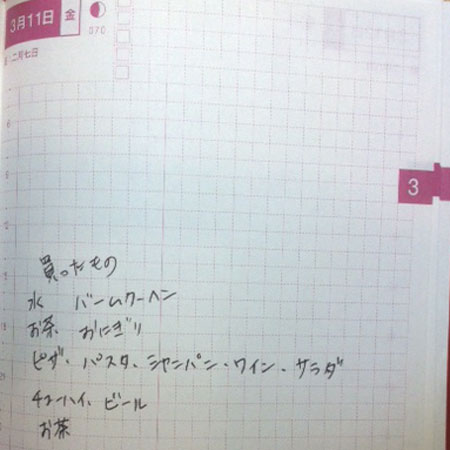 3月11日 金
070
二月七日
3
買ったもの
水 バームクーヘン
お茶 おにぎり
ピザ、パスタ、シャンパン・ワイン・サラダ
チューハイ、ビール
お茶